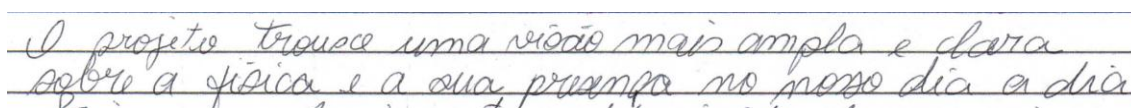 O projeto trouxe uma visão mais ampla e clara
sobre a física e a sua presença no nosso dia a dia